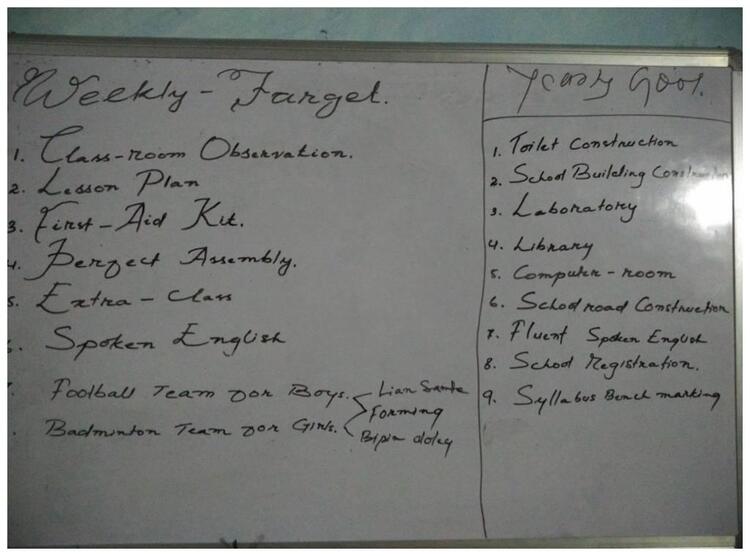 Weekly - Target.
1. Class-room Observation.
2. Lesson Plan
3. First-Aid Kit.
4. Perfect Assembly.
5. Extra - Class
6. Spoken English
Football Team for Boys.
Badminton Team for Girls.
Lian Samte
Forming
Bipin doley
Yearly Goal.
1. Toilet Construction
2. School Building Construction
3. Laboratory
4. Library
5. Computer - room
6. School road Construction
7. Fluent Spoken English
8. School Registration.
9. Syllabus Bench marking